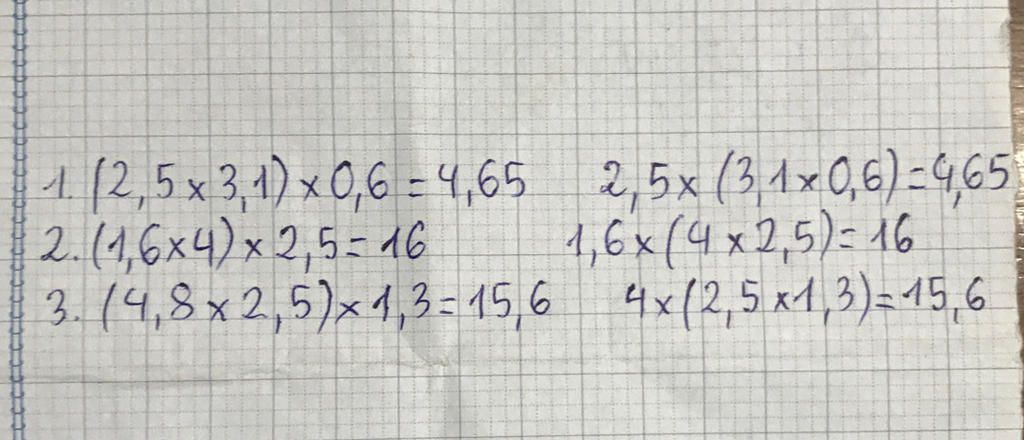 1. (2,5 x 3,1) x 0,6 = 4,65 2,5 x (3,1 x 0,6) = 4,65
2. (1,6 x 4) x 2,5 = 16 1,6 x (4 x 2,5) = 16
3. (4,8 x 2,5) x 1,3 = 15,6 4 x (2,5 x 1,3) = 15,6